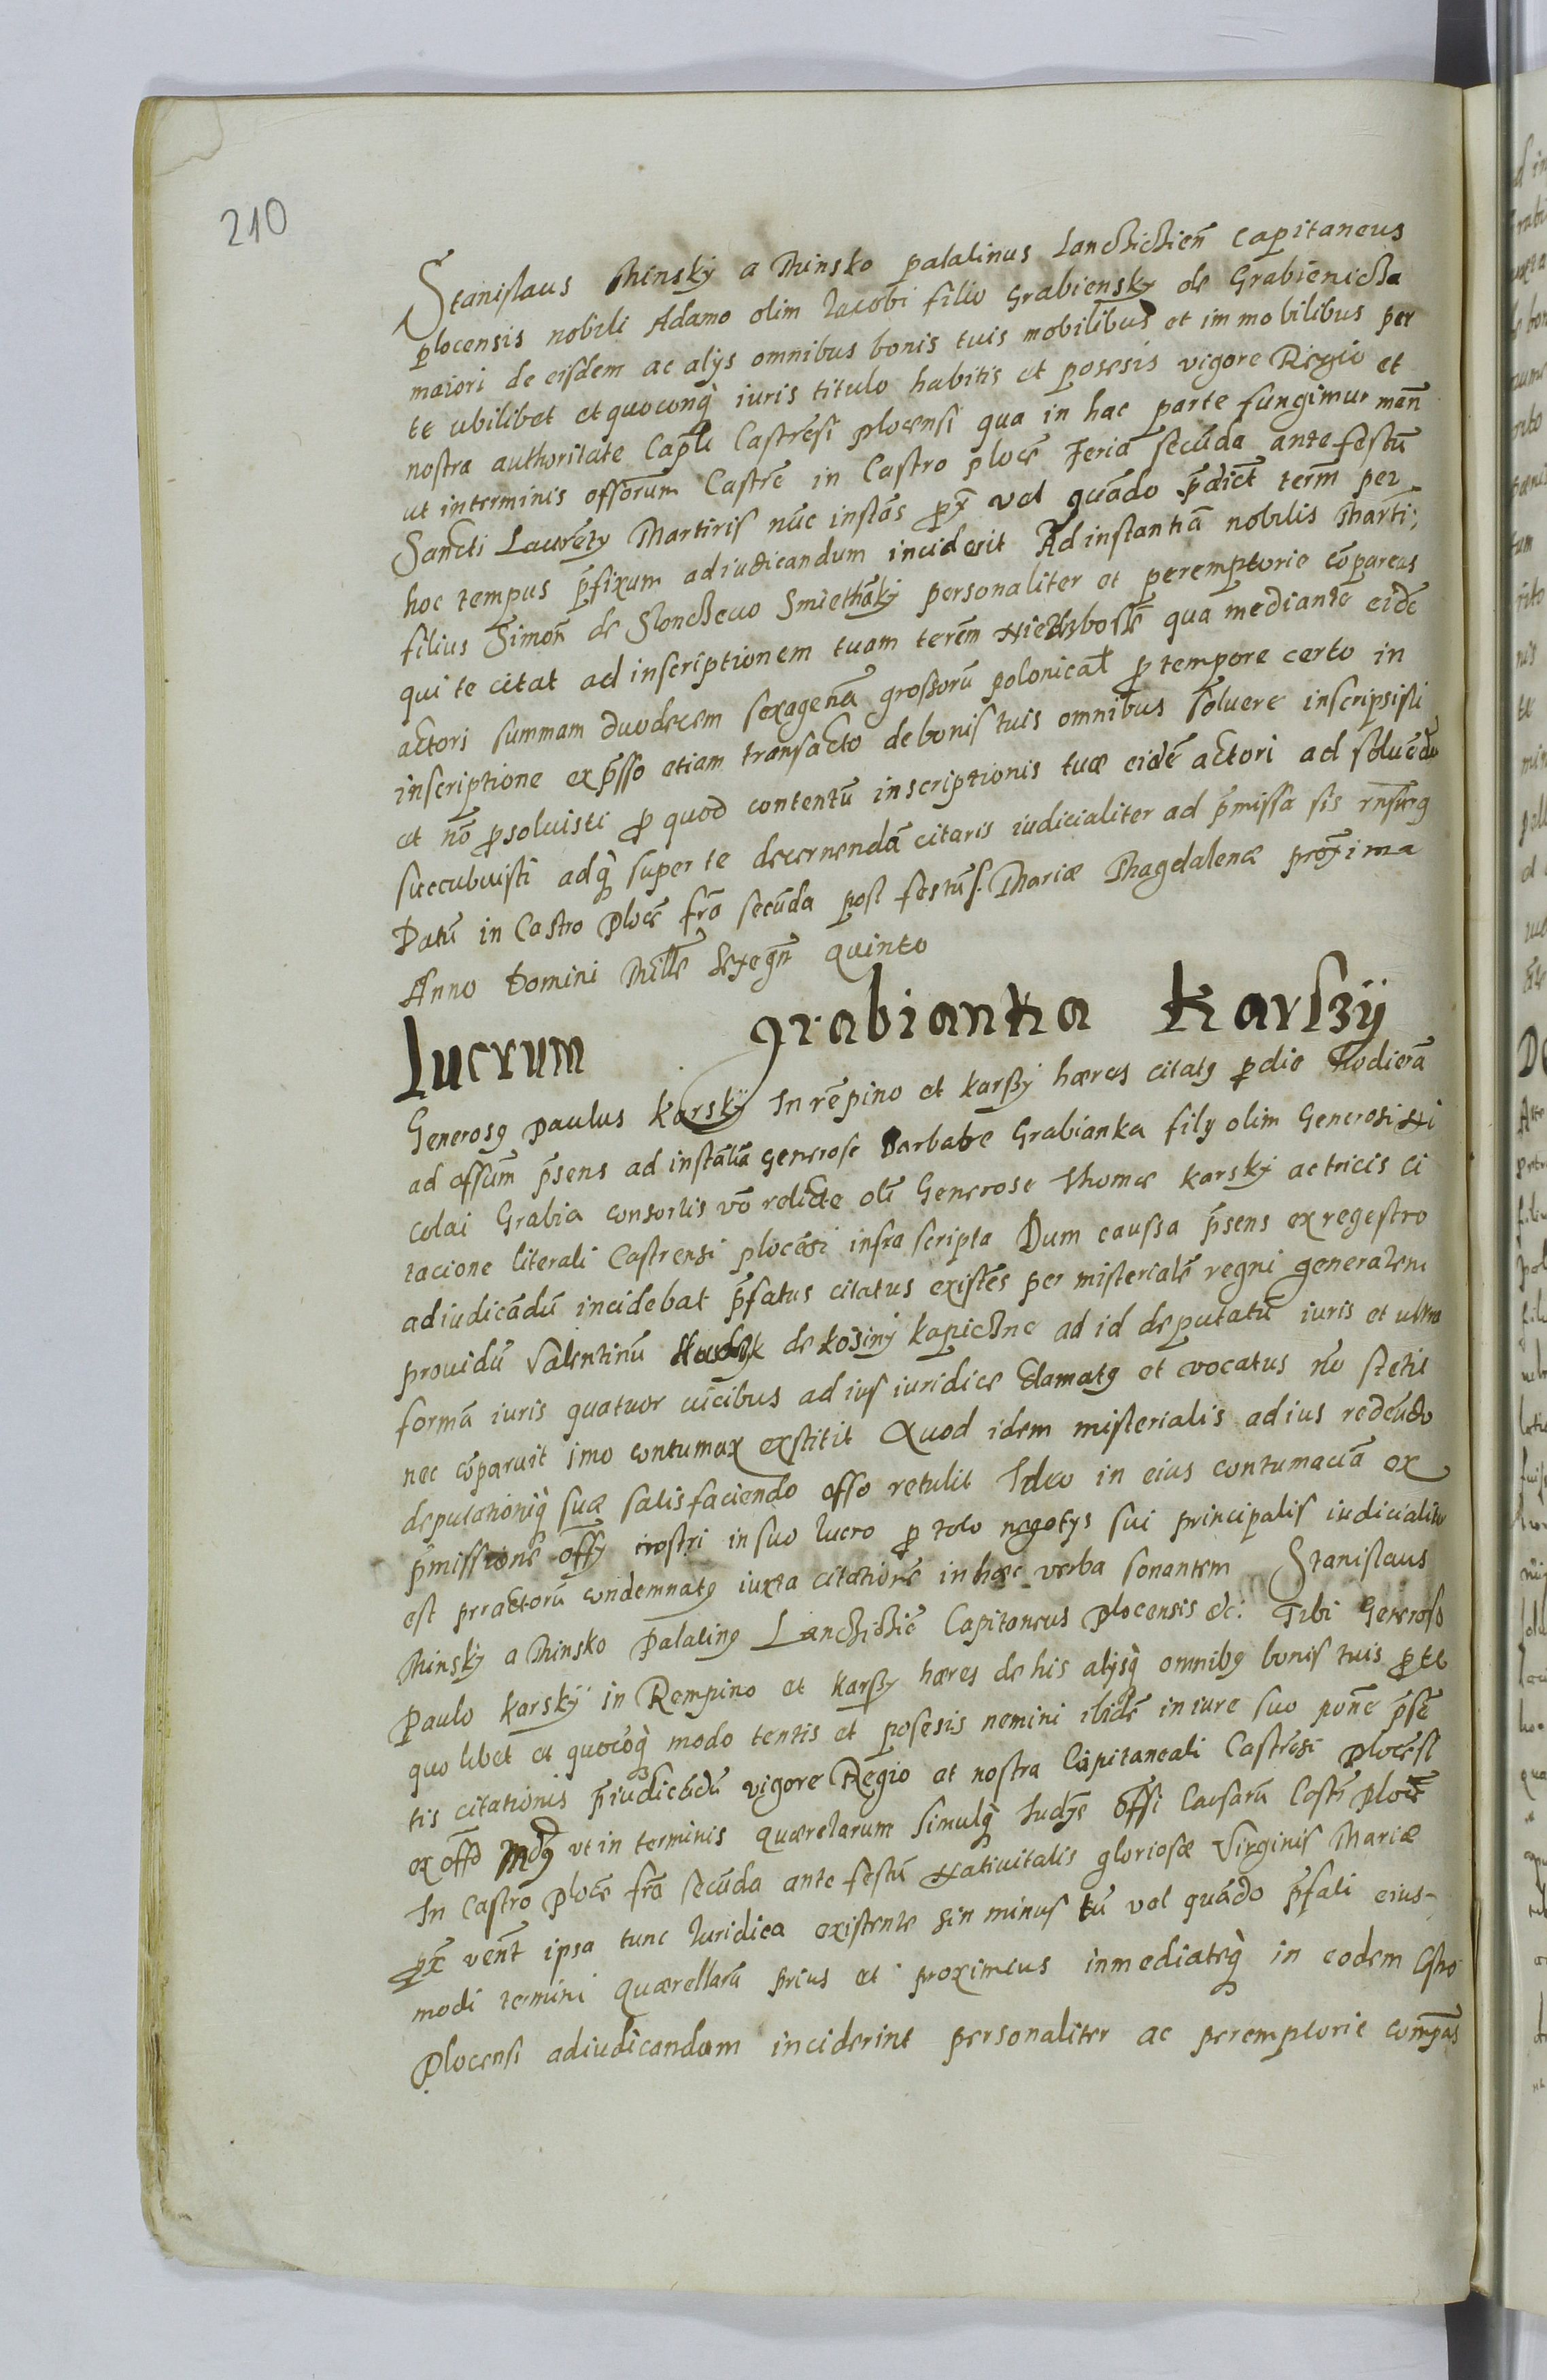 210
Stanislaus Minsky a Minsko palatinus Lanchichien̄ capitaneus
plocensis nobili Adamo olim Iacobi filio Grabiensky de Grabienicha
maiori de eisdem ac alys omnibus bonis tuis mobilibus et immobilibus per
te ubilibet et quoconq̀ iuris titulo habitis et posesis vigore Regio et
nostra authoritate Capłi Castrēsi plocensi qua in hac parte fungimur man̄
ut interminis offōrum Castrē in Castro plocē Feria secūda ante festū
Sancti Laurēty Martiris nūc instās pr̄x vel quādo p̄dict̄ term̄ per
hoc tempus p̄fixum adiudicandum inciderit Ad instantiā nobilis Marti;
filius Simon̄ de Sloncheuo Smiethāky personaliter et peremptorie cōpareas
qui te citat ad inscriptionem tuam terēm qua mediante eidē
actori summam duodecem sexagenā grossorū polonical p̱ tempore certo in
inscriptione exp̄sso etiam transacto de bonis tuis omnibus soluere inscripsisti
et nō p̱soluisti p̱ quod contentū inscriptionis tuæ eidē actori ad soluēdū
succubuisti adq̀ super te decernendā citaris iudicialiter ad p̄missa sis rn̄surg
Datū in Castro Plocē fr̄a secūda post festū S. Mariæ Magdalenæ proxīma
Anno Domini Millē Sexegn̄ quinto
Lucrum Grabianka Karszÿ
Generosꝯ Paulus Karskÿ In rēpino et karßy hæres citatꝯ p̱ die hodiernā
ad offm̄ p̄sens ad instātiā generose Barbare Grabianka fily olim Generosi Ni
colai Grabia consortis vō relicte olī Generose Thomæ karskÿ actricis ci
tacione literali Castrensi plocēsi infra scripta Dum caussa p̄sens ex regestro
adiudicādū incidebat p̄fatus citatus existēs per misterialē regni generalem
prouidū Valentinū de kosiny kapichne ad id deputatū iuris et ultra
formā iuris quatuor vicibus ad ius iuridice clamatꝯ et evocatus nō stetit
nec cōparuit imo contumax exstitit Quod idem misterialis ad ius redeūdo
deputationiq̀ suæ satisfaciendo offo retulit Ideo in eius contumaciā ex
p̄missionē offy nostri in suo lucro p̱ toto negotys sui principalis iudicialiter
est per actorū condemnatꝯ iuxta citationē in hæc verba sonantem Stanislaus
Minsky a Minsko Palatinꝯ Lanchichiē Capitaneus Plocensis etc: Tibi Generoso
Paulo Karskÿ in Rempino et Karßy hæres de his alysq̀ omnibꝯ bonis tuis p̱ te
quo libet et quocōq̀ modo tentis et posesis nemini ibidē in iure suo ponē p̄sē
tis citationis p̄iudicādū vigore Regio et nostra Capitaneali Castrēsi Plocēsi
ex offo Mdꝯ ut in terminis quærelarum simulq̀ offi Causarū Castr̄ Plocē
In Castro Plocē fr̄a secūda ante festū Natiuitatis gloriosæ Virginis Mariæ
px̄ vent̄ ipsa tunc Iuridica existente sin minus tū vel quādo p̄fati eius-
modi termini quærellarū prius et proximius inmediateq̀ in eodem Cstro
Plocensi adiudicandum inciderint personaliter ac peremptorie comp̄as